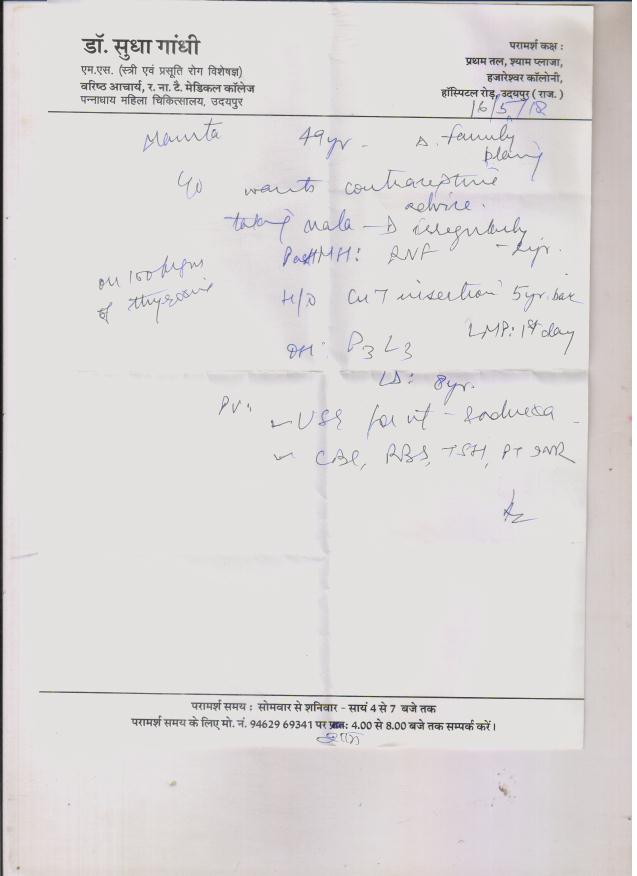 डॉ. सुधा गांधी
एम.एस. (स्त्री एवं प्रसूति रोग विशेषज्ञ)
वरिष्ठ आचार्य, र. ना. टै. मेडिकल कॉलेज
पन्नाधाय महिला चिकित्सालय, उदयपुर
परामर्श कक्ष :
प्रथम तल, श्याम प्लाजा,
हजारेश्वर कॉलोनी,
हॉस्पिटल रोड़, उदयपुर ( राज. )
16/5/18
Mamta 49yr. family
wants contraceptive
advice.
taking mala - D irregularly
Past MH:
on 100 µgm
of thyroxine
H/O CuT insertion 5yr. bak
LMP: 1st day
OH: P3 L3
LD: 8yr.
PV:
USG for ut -
CBC, RBS, TSH, PT INR
परामर्श समय : सोमवार से शनिवार - सायं 4 से 7 बजे तक
परामर्श समय के लिए मो. नं. 94629 69341 पर प्रात: 4.00 से 8.00 बजे तक सम्पर्क करें।